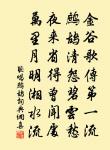 金谷歌傳第一流
鷓鴣清怨碧雲愁
夜來省得曾聞處
萬里月明湘水流
聽唱鷓鴣